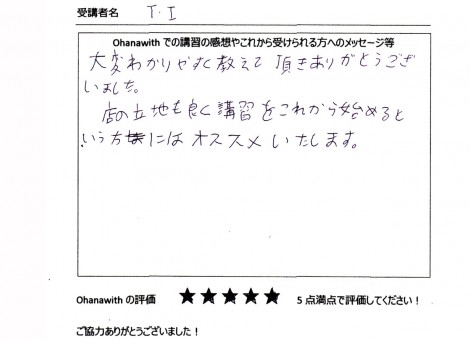 受講者名 T.I
Ohanawith での講習の感想やこれから受けられる方へのメッセージ等
大変わかりやすく教えて頂きありがとうござ
いました。
店の立地も良く講習をこれから始めると
いう方にはオススメいたします。
Ohanawith の評価 ★★★★★ 5 点満点で評価してください！
ご協力ありがとうございました！